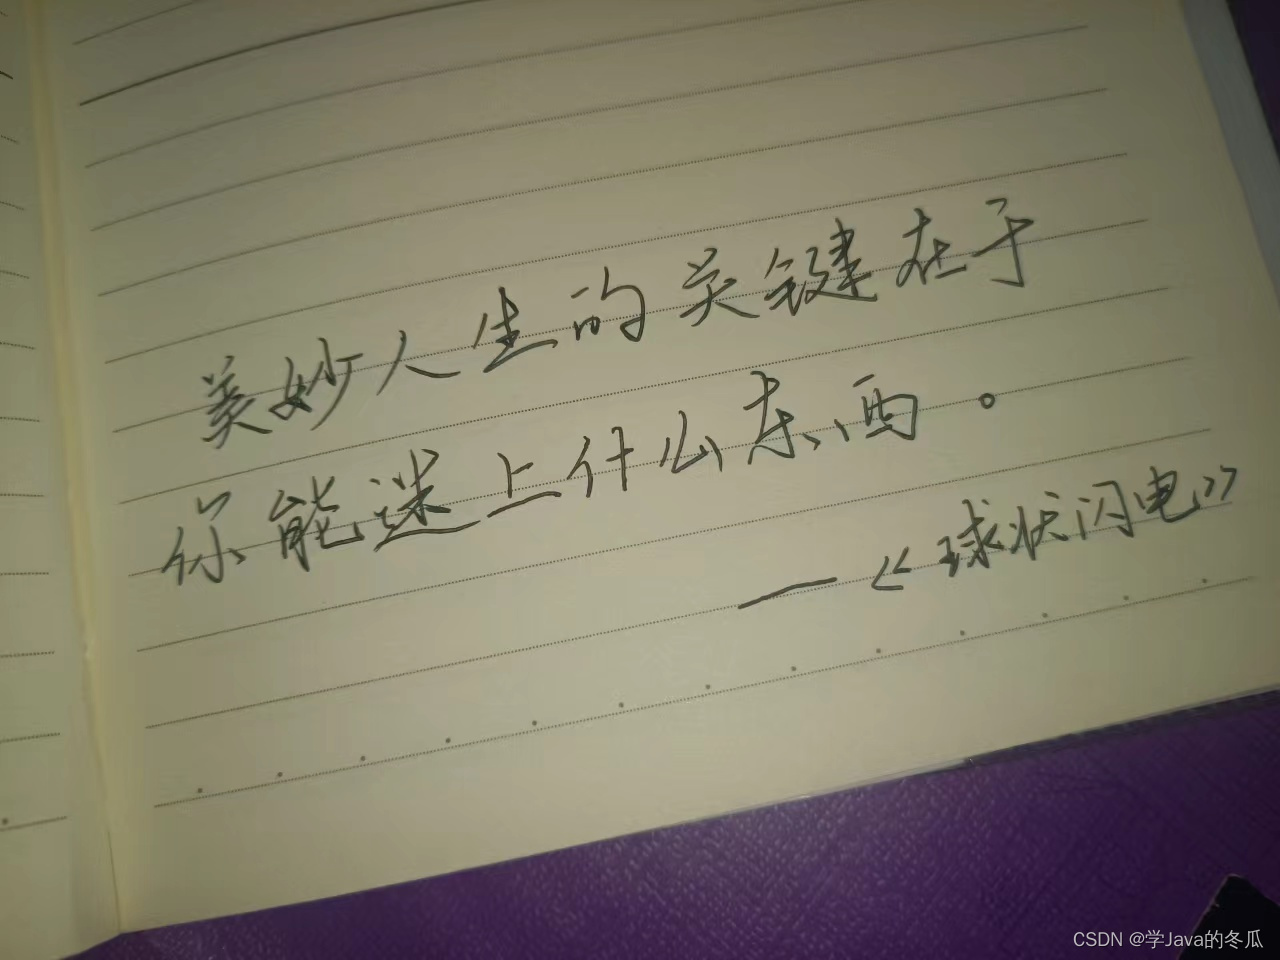 美妙人生的关键在于
你能迷上什么东西。
—《球状闪电》
CSDN @学Java的冬瓜